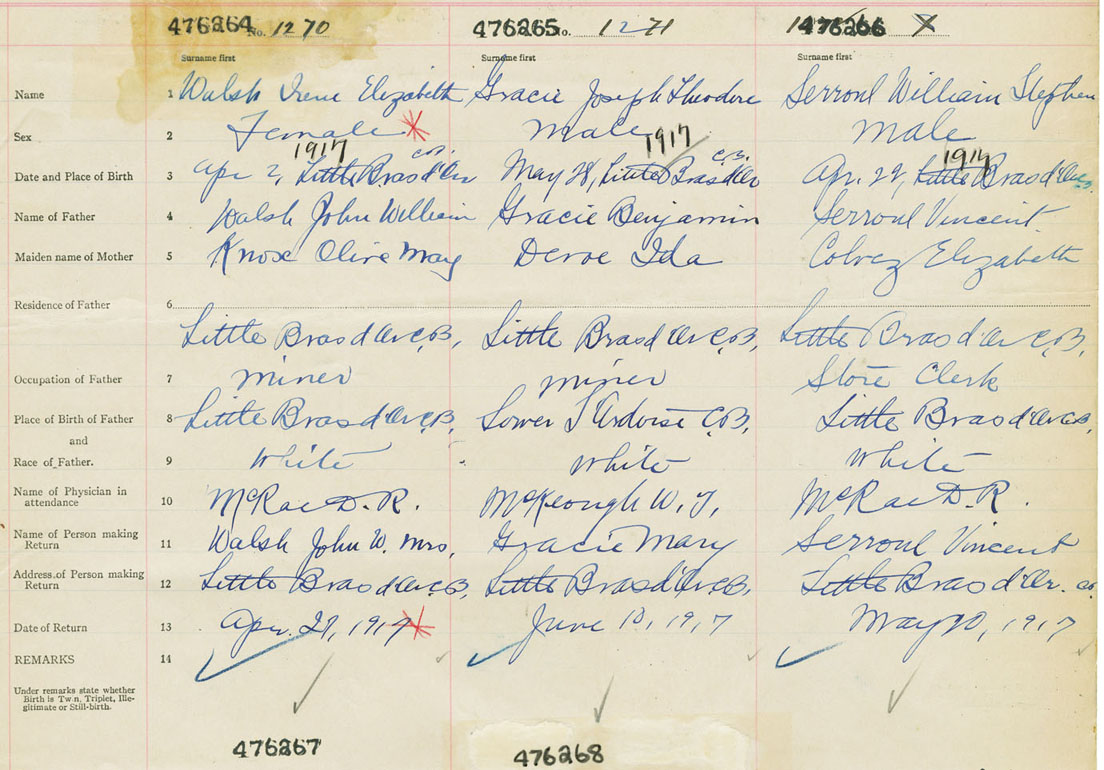 476264 No. 1270 476265 No. 1271 476266
Surname first Surname first Surname first
Name 1 Walsh Irene Elizabeth Gracie Joseph Theodore Serroul William Stephen
Sex 2 Female Male Male
1917 1917 1917
Date and Place of Birth 3 Apr 2, Little Bras d'Or C.B. May 28, Little Bras d'Or C.B. Apr. 22, Little Bras d'Or C.B.
Name of Father 4 Walsh John William Gracie Benjamin Serroul Vincent
Maiden name of Mother 5 Knox Olive May Deroe Ida Elizabeth
Residence of Father 6
Little Bras d'Or C.B, Little Bras d'Or C.B, Little Bras d'Or C.B,
Occupation of Father 7 Miner Miner Store Clerk
Place of Birth of Father 8 Little Bras d'Or C.B, Lower L'Ardoise C.B, Little Bras d'Or C.B,
and
Race of Father. 9 White White White
Name of Physician in
attendance 10 McRae D. R. McKeough W. J, McRae D. R.
Name of Person making
Return 11 Walsh John W. Mrs, Gracie Mary Serroul Vincent
Address.of Person making
Return 12 Little Bras d'Or C.B, Little Bras d'Or C.B, Little Bras d'Or. CB.
Date of Return 13 Apr. 27, 1917 June 10, 1917 May 20, 1917
REMARKS 14
Under remarks state whether
Birth is Twin, Triplet, Ille-
gitimate or Still-birth.
476267 476268